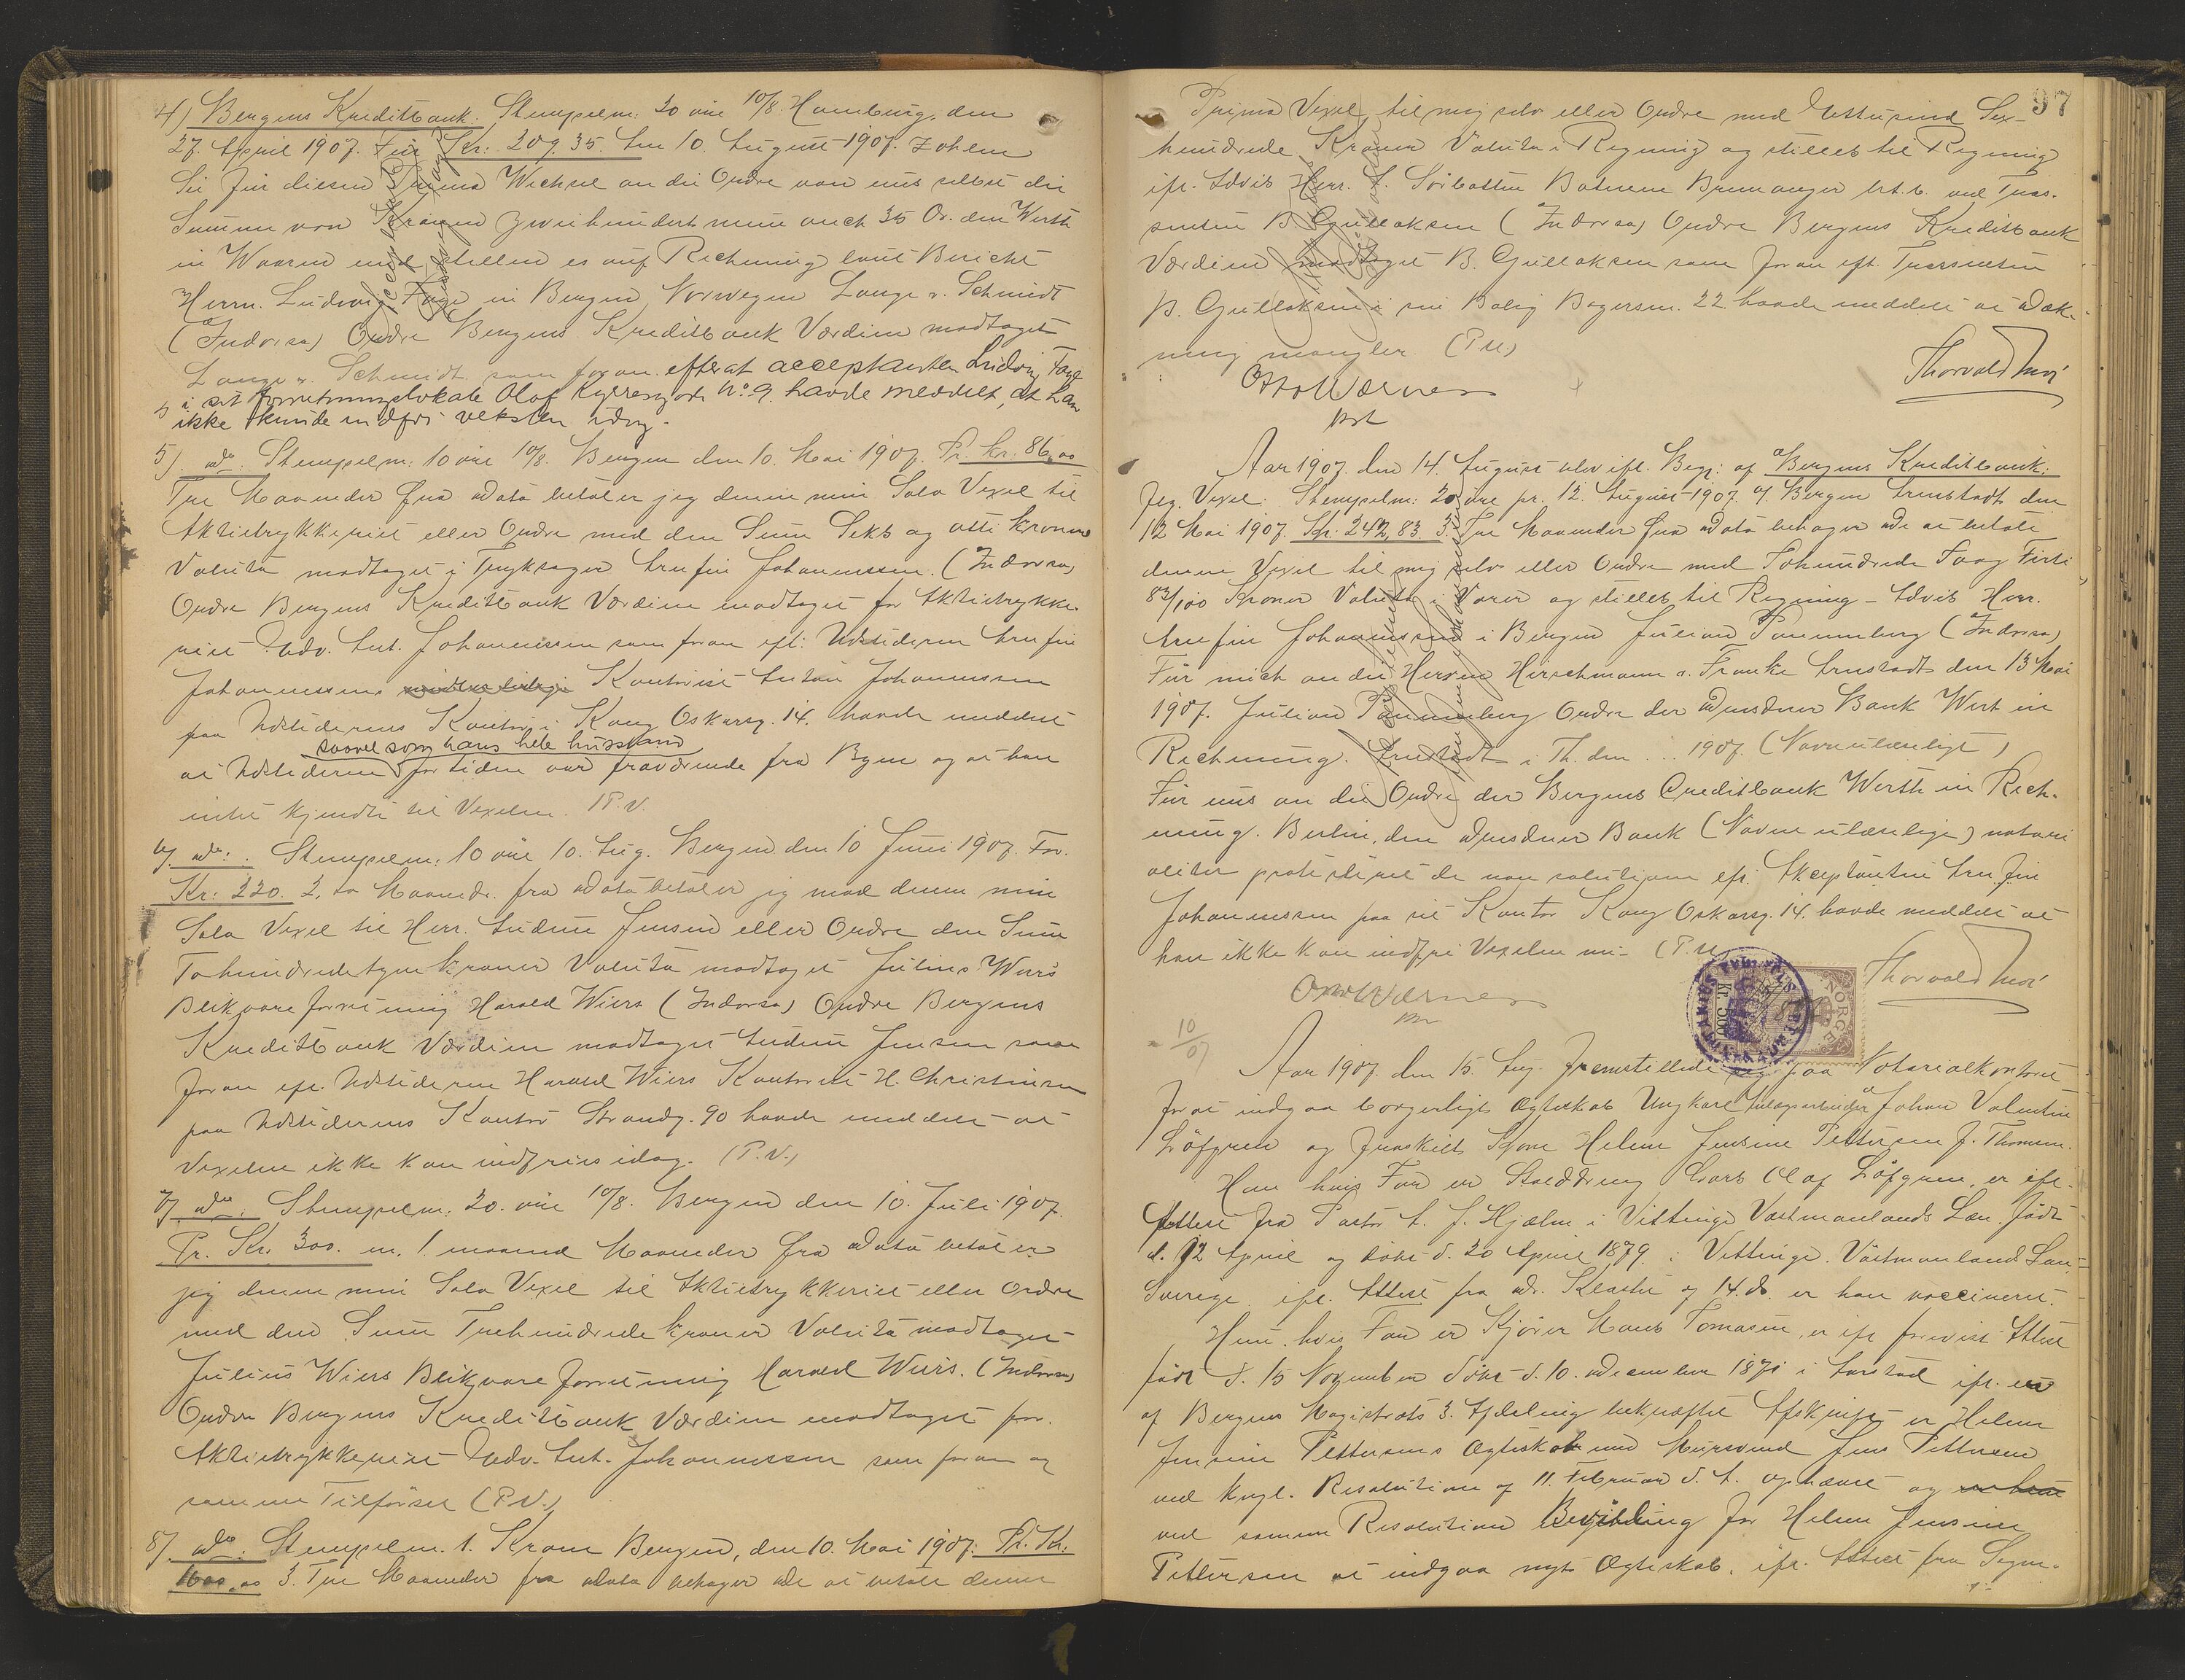 4) Bergens Kreditbank. Stempelm: 20 øre 10/8. Hamburg, den
27. April 1907. Für Kr: 209.35. Am 10. August 1907. Zahlen
Sie für diesen Prima Wechsel an die Ordre von uns selbst die
Summe von Kronen zweihundert neun auch 35 Ör. den Werth
in Waaren und stellen es auf Rechnung laut Bericht
Herrn. Ludwig Faye in Bergen, Norwegen Lange & Schmidt
(Indorsa) Ordre Bergens Kreditbank Værdien modtaget
Lange & Schmidt som foran efterat acceptanten Ludvig Faye
i sit forretningslokale Olaf Kyrresgade No 9. havde meddelt, at han
ikke kunde indfri vekslen idag.
5) do. Stempelm: 10 øre 10/8. Bergen den 10. Mai 1907. Pr. kr. 86,00
Tre Maaneder fra Dato betaler jeg denne min Sola Vexel til
Aktietrykkeriet eller Ordre med den Sum Seks og otti Kroner
Valuta modtaget i Tryksager Arnfin Johannessen. (Indorsa)
Ordre Bergens Kreditbank Værdien modtaget for Aktietrykke-
riet Adv. Ant. Johannessen som foran eft: Udstederen Arnfin
Johannessens Kontorist Anton Johannessen
paa Udstederens Kontor i Kong Oskarsg. 14. havde meddelt
saavel som hans hele husstand
at Udstederen for tiden var fraværende fra Byen og at han
intet kjendte til Vexelen. (P.V.
6) do: . Stempelm: 10 øre 10. Aug. Bergen den 10 Juni 1907. For.
Kr: 220. 2, to Maaneder fra Dato betaler jeg mod denne min
Sola Vexel til Herr. Ludum Jensen eller Ordre den Sum
Tohundredetyve kroner Valuta modtaget Julius Wiers
Blikvareforretning Harald Wiers (Indorsa) Ordre Bergens
Kreditbank Værdien modtaget Ludum Jensen som
foran eft. Udstederen Harald Wiers Kontorist H. Christensen
paa Udstederens Kontor Strandg. 90 havde meddelt at
Vexelen ikke kan indfries idag. (P.V.)
7) do. Stempelm: 20. øre 10/8. Bergen den 10. Juli 1907.
Pr. Kr. 300. m. 1. maaned Maaneder fra Dato betaler
jeg denne min Sola Vexel til Aktietrykkeriet eller Ordre
med den Sum Trehundrede kroner Valuta modtaget
Julius Wiers Blikvareforretning Harald Wiers. (Indorsa)
Ordre Bergens Kreditbank Værdien modtaget for
Aktietrykkeriet Adv. Ant. Johannessen som foran og
samme Tilførsel (P.V.)
8) do. Stempelm. 1. Krone Bergen, den 10. Mai 1907. Pr. Kr.
1600.00 3. Tre Maaneder fra Dato behager De at betale denne
97
Prima Vexel, til mig selv eller Ordre med Ettusind Sex-
hundrede Kroner Valuta i Regning og stilles til Regning
ifl. Advis Herr. A. Sørbotten Botnene Bremanger bet.b. ved Tras-
senten B. Gullaksen (Indorsa) Ordre Bergens Kreditbank
Værdien modtaget B. Gullaksen som foran eft. Trassenten
B. Gullaksen i sin Bolig Bøgersm. 22 havde meddelt at Dæk-
ning mangler. (P.U.)
Thorvald
Otto Werner
bst
Aar 1907. den 14. August blev ifl. Begj: af Bergens Kreditbank:
flg. Vexel: Stempelm: 20 øre pr. 12. August 1907. af Bergen Arnstadt den
12 Mai 1907. Kr. 242,83. 3. Tre Maaneder fra Dato behager De at betale
denne Vexel til mig selv eller Ordre med Tohundrede To og Firti
83/100 Kroner Valuta i Varer og stilles til Regning – Advis Herr.
Arnfin Johannessen i Bergen Julian Pannenberg (Indorsa)
Für mich an die Herren Hirschmann & Franke Arnstadt den 13 Mai
1907. Julian Pannenberg Ordre der Dresdner Bank Wert in
Rechnung. Arnstadt i Th. den ... 1907. (Navn ulæseligt)
Für uns an die Ordre der Bergens Creditbank Werth in Rech-
nung. Berlin, den Dresdner Bank (Navne ulæselige) notari
aliter protesteret de non solutione eft. Akceptanten Arnfin
Johannessen paa sit Kontor Kong Oskarsg. 14. havde meddelt at
han ikke kan indfri Vexelen nu – (P.U.
Thorvald
Otto Werner
bst
NORGE
10/07
Aar 1907. den 15. Aug. fremstillede sig paa Notarialkontoret
for at indgaa borgerligt Ægteskab Ungkarl Johan Valentin
Löfgren og fraskilt Kone Helene Jensine Pettersen f. Thomsen.
Han hvis Far er Staldkreng Lars Olaf Löfgren, er ifl.
Attest fra Pastor A. J. Hjelm i Vittinge Vestmanlands Læn født
d. 12 April og døbt d. 20 April 1879 i Vittinge. Västmanland Læn-
Sverige ifl. Attest fra Dr. Klaste af 14. ds. er han vaccineret.
Hun hvis Far er Kjører Hans Tomasen, er ifl forevist Attest
født d. 15 November døbt d. 10. December 1871 i Aarstad ifl. en
af Bergens Magistrats 3. Afdeling bekræftet Afskrift er Helene
Jensine Pettersens Ægteskab med Mursvend Jens Pettersen
ved kngl. Resolution af 11. Februar d. A. ophævet og
ved samme Resolution Bevilling for Helene Jensine
Pettersen at indgaa nyt Ægteskab. ifl. Attest fra Sogne-